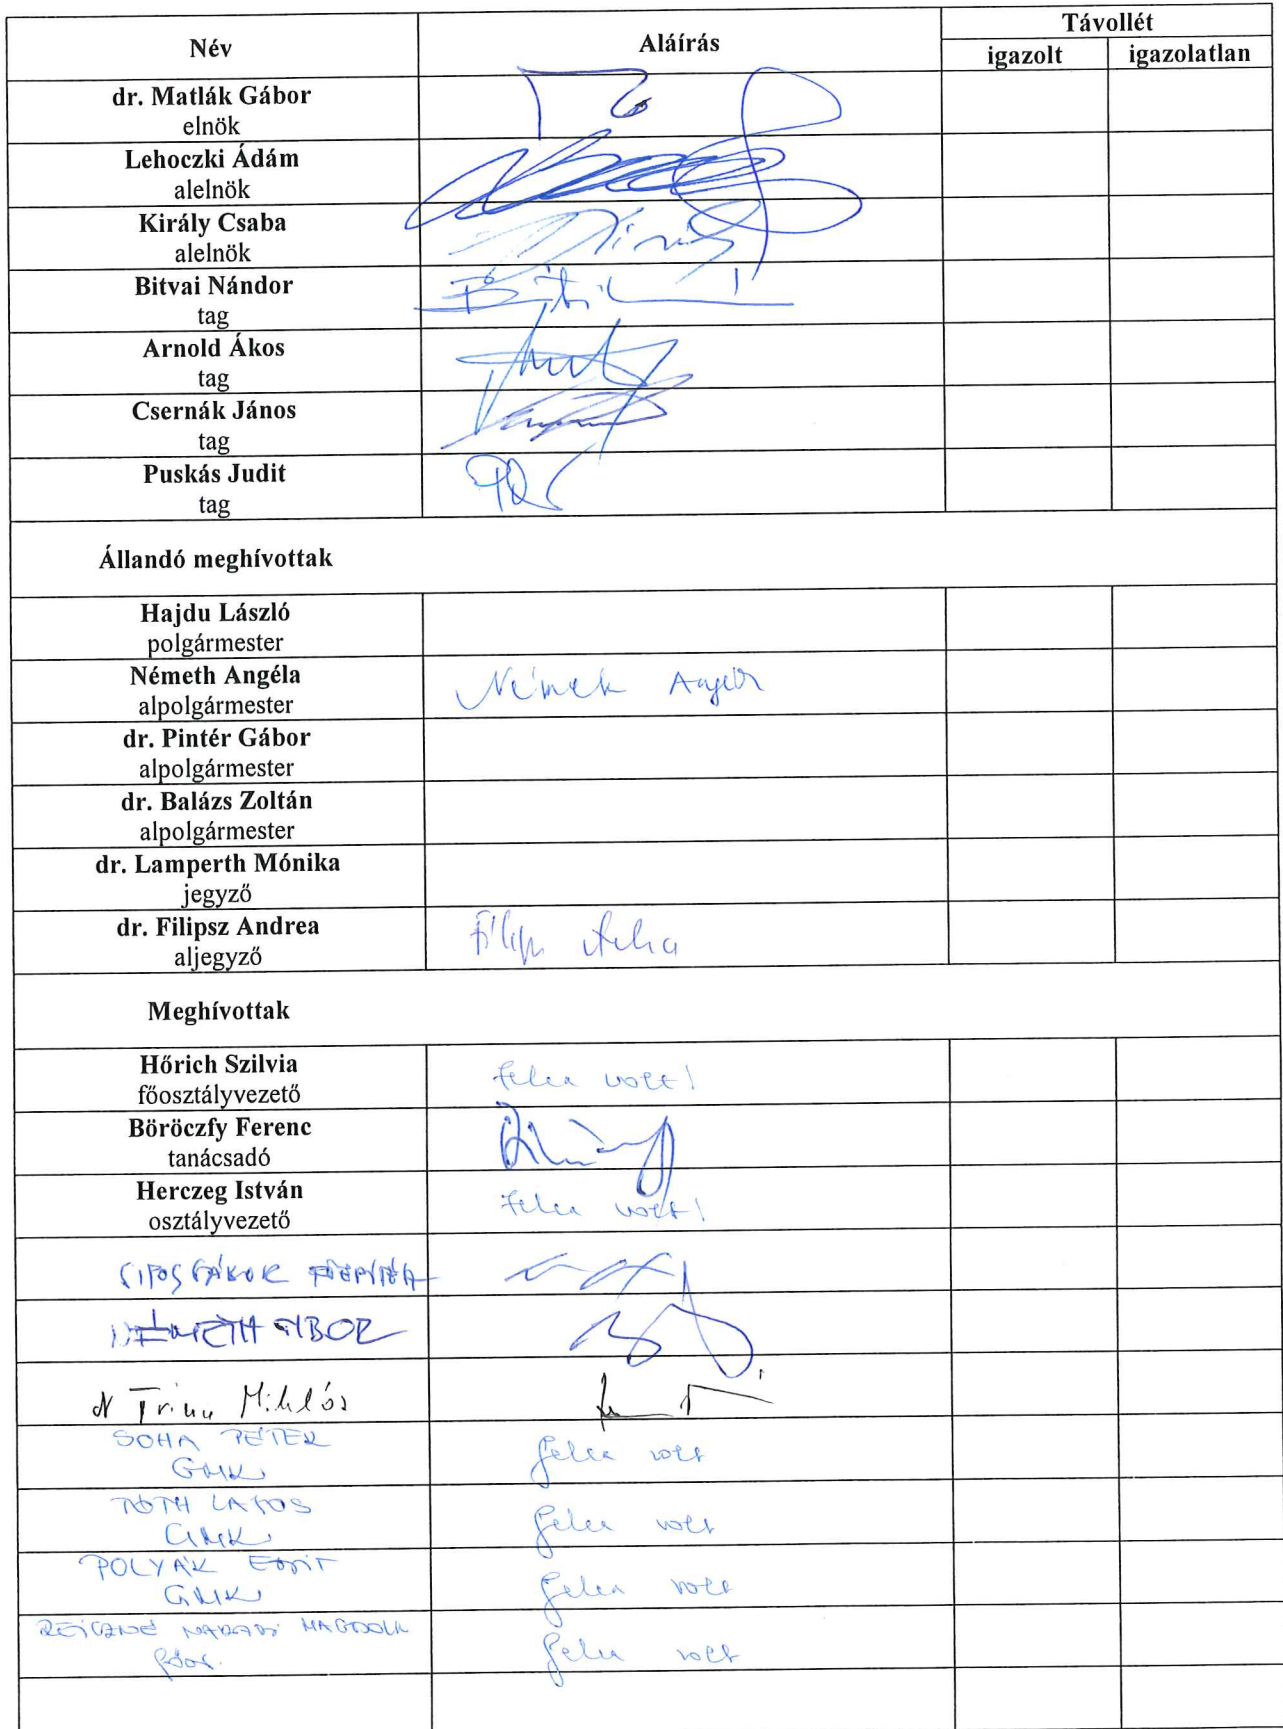 Név Aláírás Távollét
igazolt igazolatlan
dr. Matlák Gábor
elnök
Lehoczki Ádám
alelnök
Király Csaba
alelnök
Bitvai Nándor
tag
Arnold Ákos
tag
Csernák János
tag
Puskás Judit
tag
Állandó meghívottak
Hajdu László
polgármester
Németh Angéla
alpolgármester
dr. Pintér Gábor
alpolgármester
dr. Balázs Zoltán
alpolgármester
dr. Lamperth Mónika
jegyző
dr. Filipsz Andrea
aljegyző
Meghívottak
Hőrich Szilvia
főosztályvezető
Jelen volt!
Böröczfy Ferenc
tanácsadó
Herczeg István
osztályvezető
Jelen volt!
SIPOS GÁBOR
NÉMETH GÁBOR
Miklós
SOHA PÉTER
GMK
Jelen volt
TÓTH LAJOS
GMK
Jelen volt
POLYÁK EDIT
GMK
Jelen volt
Jelen volt